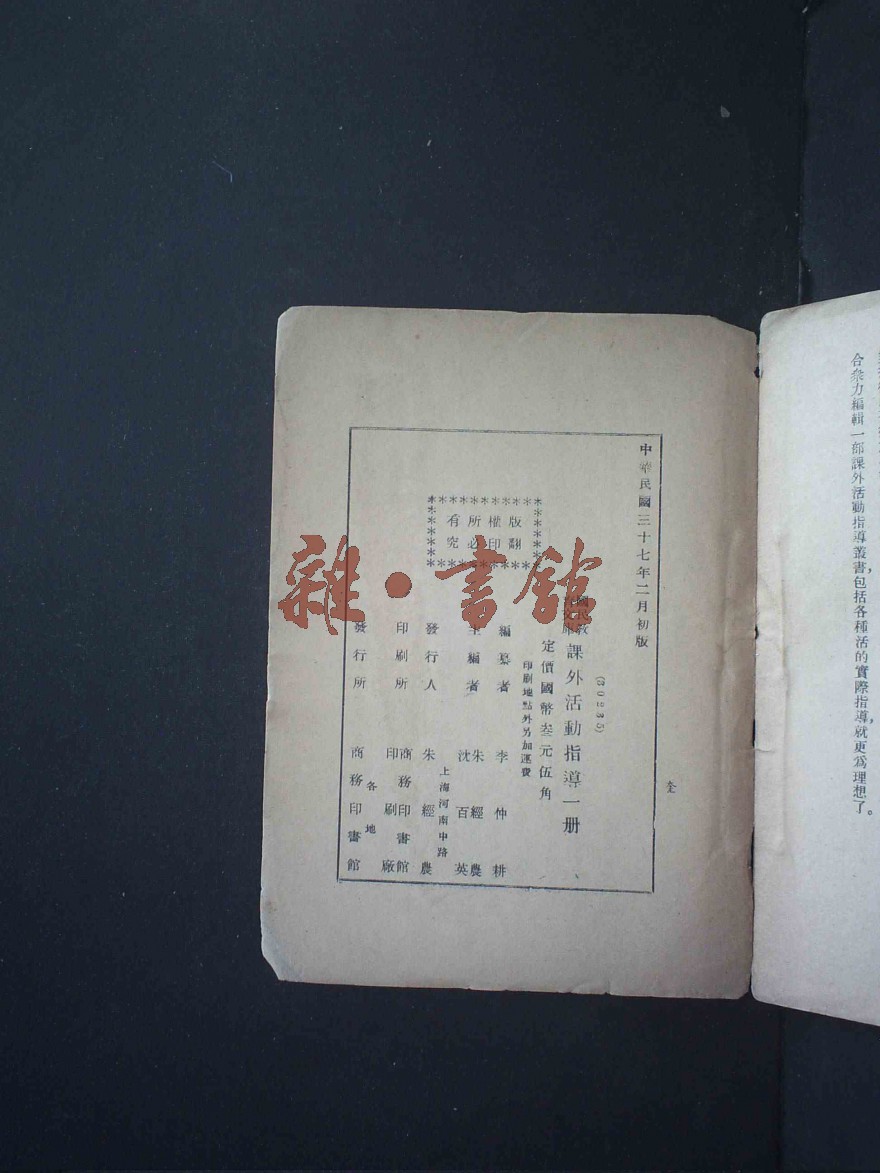 合衆力編輯一部課外活動指導叢書，包括各種活的實際指導，就更爲理想了。
全
中華民國三十七年二月初版
(30235)
國民教
課外活動指導一册
定價國幣叁元伍角
印刷地點外另加運費
版權所有
翻印必究
編纂者 李仲耕
主編者 朱經農 沈百英
發行人 朱經農
上海河南中路
印刷所 商務印書館印刷廠
發行所 各地 商務印書館
雜·書館